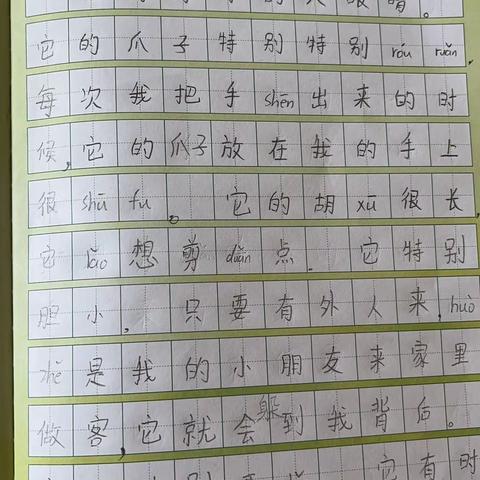 眼睛。
它的爪子特别特别róu ruǎn,
每次我把手shēn出来的时
候,它的爪子放在我的手上
很shū fu。它的胡xū很长,
它lǎo想剪duǎn点.它特别
胆小,只要有外人来,huò
zhě是我的小朋友来家里
做客,它就会躲到我背后。
它有时